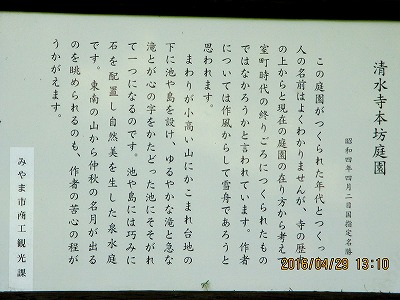 清水寺本坊庭園
昭和四年四月二日国指定名勝
この庭園がつくられた年代とつくった
人の名前はよくわかりませんが、寺の歴史
の上からと現在の庭園の在り方から考えて
室町時代の終りごろにつくられたもの
ではなかろうかと言われています。作者
については作風からして雪舟であろうと
思われます。
まわりが小高い山にかこまれ台地の
下に池や島を設け、ゆるやかな滝と急な
滝とが心の字をかたどった池にそそがれ
て一つになるのです。池や島には巧みに
石を配置し自然美を生した泉水庭
です。東南の山から仲秋の名月が出る
のを眺められるのも、作者の苦心の程が
うかがえます。
みやま市商工観光課
2016/04/29 13:10